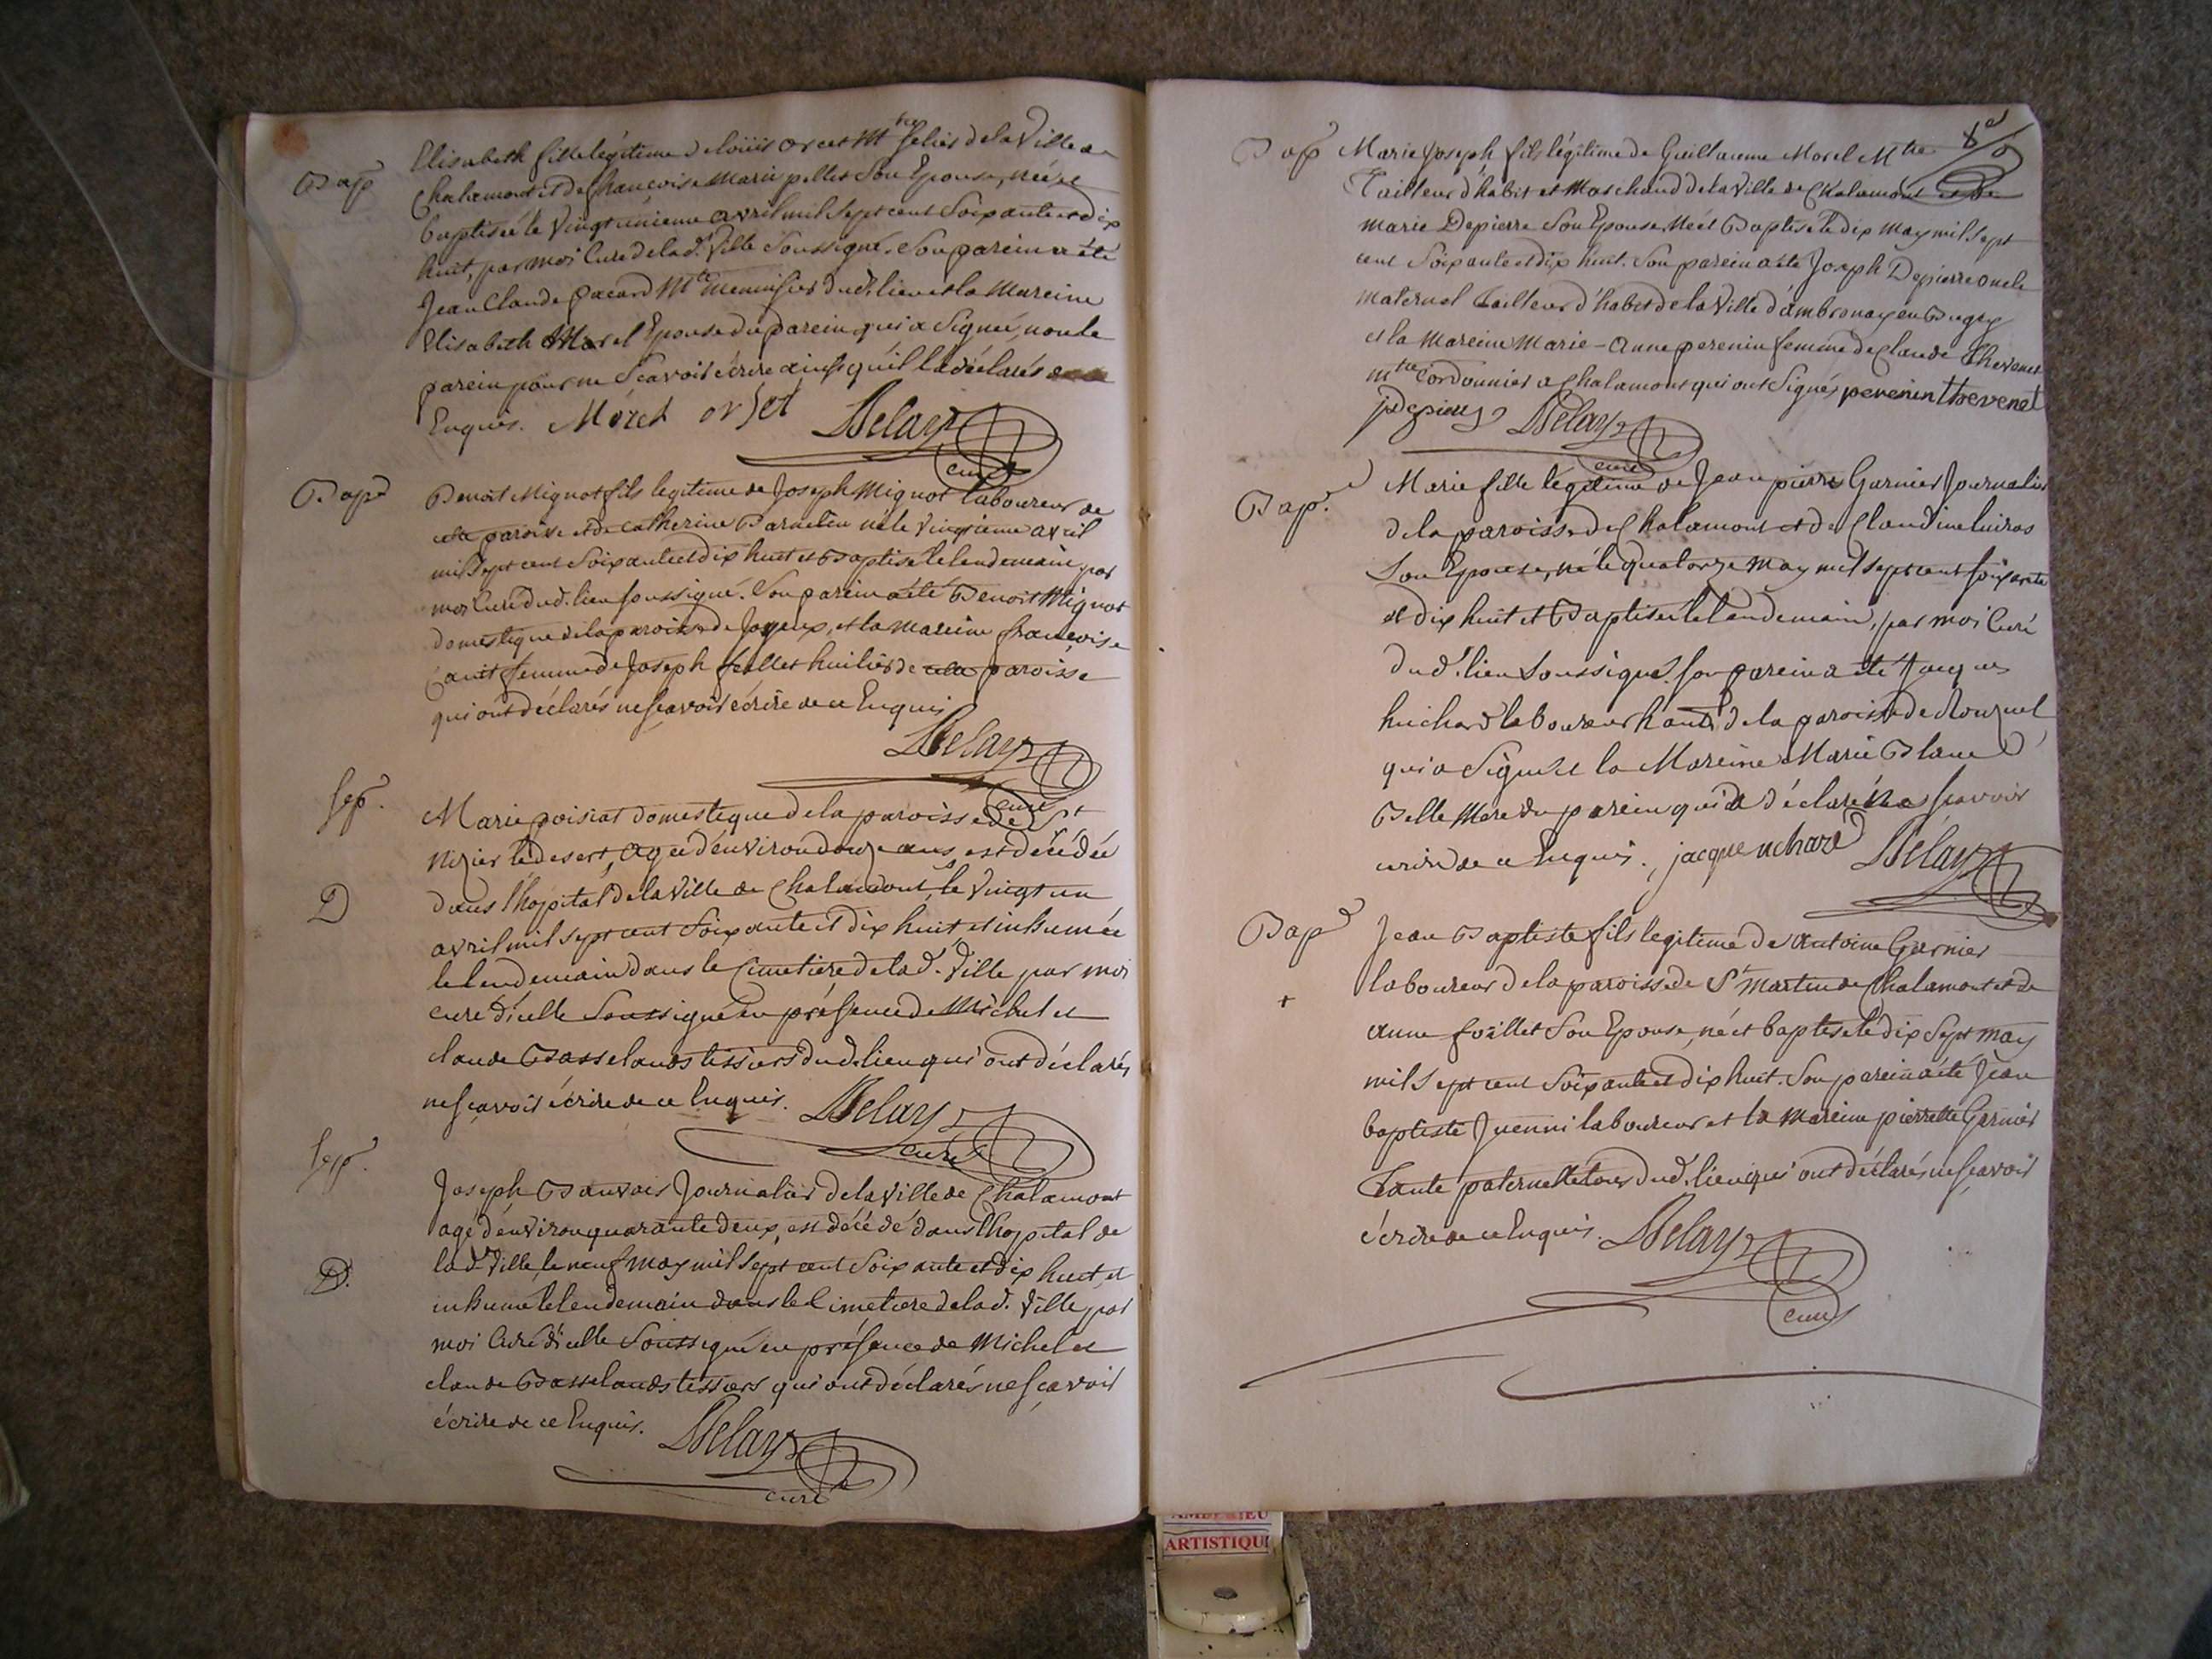 Bap
Elisabeth fille légitime de loüis orcet Mtre selier de la Ville de
Chalamont et de françoise Marie pellet Son Epouse, née et
baptisée le Vingtunieme avril mil Sept cent Soixante et dix
huit, par moi Curé de lad. Ville Soussigné. Son parein a été
Jean Claude pacard Mtre menuisier dud. lieu et la Mareine
Elisabeth Morel Epouse du parein qui a Signée, non le
parein pour ne Scavoir écrire ainsi qu'il l'a déclaré de ce
Enquis. Morel orset Delay
curé
Bap
Benoit Mignot fils legitime de Joseph Mignot laboureur de
cette paroisse et de Catherine né le Vingtieme avril
mil Sept cent Soixante et dix huit et Baptisé le lendemain par
moi Curé dud. lieu soussigné. Son parein a été Benoit Mignot
domestique de la paroisse de Joyeux, et la Mareine francoise
femme de Joseph feillet huilier de cette paroisse
qui ont déclarés ne scavoir écrire de ce Enquis
Delay
curé
Sep.
D
Marie poisiat domestique de la paroisse de St
Nizier le desert, agée d'environ douze ans, est décédée
dans l'hopital de la Ville de Chalamont, le Vingt un
avril mil Sept cent Soixante et dix huit et inhumée
le lendemain dans le Cimetiere de lad. Ville par moi
curé d'icelle Soussigné en présence de Michel et
claude Basselands tissiers dud. lieu qui ont déclarés
ne scavoir écrire de ce Enquis. Delay
curé
Sep.
D.
Joseph Bauvais Journalier de la Ville de Chalamont
agé d'environ quarante deux, est décédé dans l'hopital de
lad. Ville, le neuf may mil Sept cent Soixante et dix huit, et
inhumé le lendemain dans le Cimetiere de lad. Ville, par
moi Curé d'icelle Soussigné en présence de Michel et
claude Basselands tissiers qui ont déclarés ne scavoir
écrire de ce Enquis. Delay
curé
Bap
Marie Joseph fils légitime de Guillaume Morel Mtre
Tailleur d'habit et Marchand de la Ville de Chalamont et de
Marie Depierre Son Epouse, Né et Baptisé le dix May mil Sept
cent Soixante et dix huit. Son parein a été Joseph Depierre oncle
maternel Tailleur d'habit de la Ville d'ambronay en Bugey
et la Mareine Marie-Anne perenin femme de Claude Thevenet
mtre Cordonnier a Chalamont qui ont Signés perenin thevenet
j depierre Delay
curé
Bap.
Marie fille légitime de Jean pierre Garnier Journalier
de la paroisse de Chalamont et de Claudine
Son Epouse, née le quatorze May mil Sept cent soixante
et dix huit et Baptisée le lendemain, par moi Curé
dud. lieu Soussigné. Son parein a été Jacques
huchard laboureur de la paroisse de Ronzuel
qui a Signé et la Mareine Marie Blanc
Belle Mere du parein qui a déclaré ne scavoir
ecrire de ce Enquis. jacque uchard Delay
Bap
+
Jean Baptiste fils legitime de Antoine Garnier
laboureur de la paroisse de St Martin de Chalamont et de
anne foillet Son Epouse, né et baptisé le dix Sept may
mil Sept cent Soixante et dix huit. Son parein a été Jean
baptiste Juenni laboureur et la Mareine pierrette Garnier
Tante paternelle tous dud. lieu qui ont déclarés ne scavoir
écrire de ce Enquis. Delay
curé
ARTISTIQU